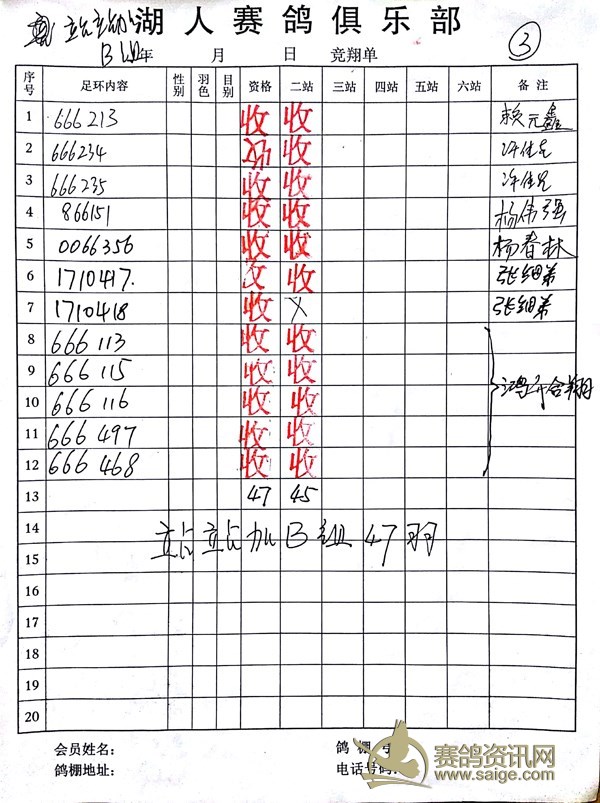 站站加 湖人赛鸽俱乐部 ③
B组 年 月 日 竞翔单
序号 足环内容 性别 羽色 目别 资格 二站 三站 四站 五站 六站 备注
1 666213 收 收 赖元鑫
2 666234 收 收 许佳兄
3 666235 收 收 许佳兄
4 866151 收 收 杨伟强
5 0066356 收 收 杨春林
6 1710417. 收 收 张细弟
7 1710418 收 X 张细弟
8 666 113 收 收
9 666 115 收 收
10 666 116 收 收 合翔
11 666 497 收 收
12 666 468 收 收
13 47 45
14
站站加B组47羽
15
16
17
18
19
20
会员姓名: 鸽棚号:
鸽棚地址: 电话号码:
赛鸽资讯网
www.saige.com